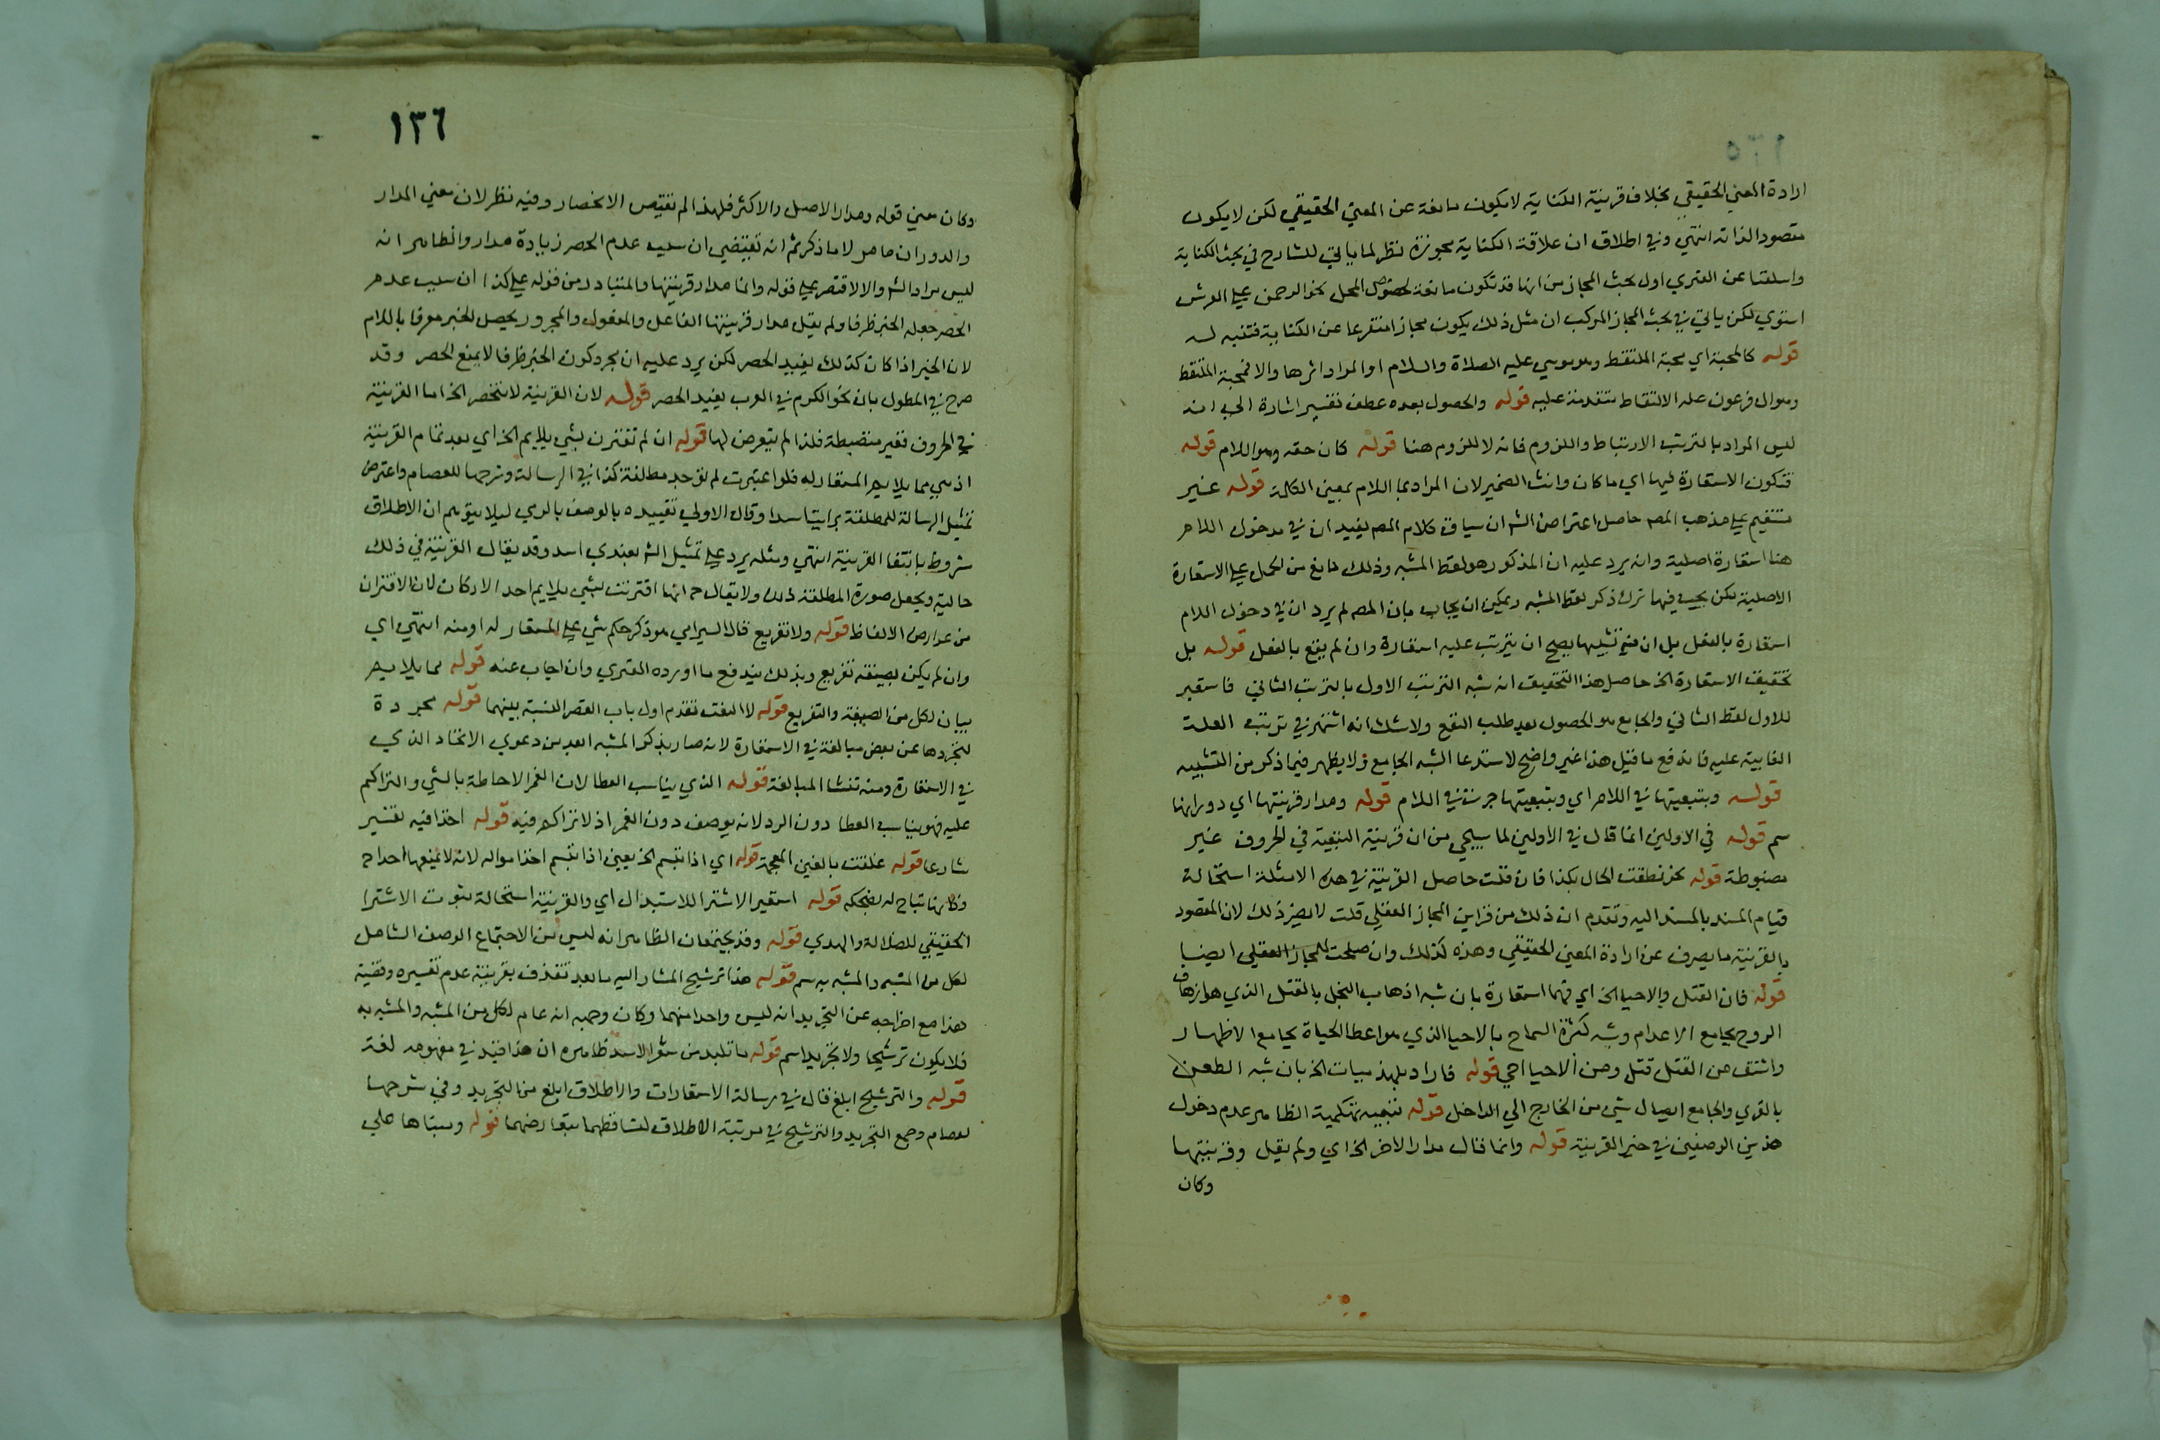 ارادة المعني الحقيقي بخلاف قرينة الكناية لا يكون مانعة عن المعني الحقيقي لكن لا يكون
مقصود الذاته انتهي وفي اطلاق ان علاقة الكناية مجوزة نظر لما ياتي للشارح في بحث الكناية
واسلفنا عن الفنري اول بحث المجاز من انها قد تكون مانعة لخصوص المحل نحو الرحمن علي العرش
استوي لكن ياتي في بحث المجاز المركب ان مثل ذلك يكون مجازا متفرعا عن الكناية فتنبه له
قوله كالمحبة اي محبة الملتقط وهو موسي عليه الصلاة والسلام او المراد اثرها والا فمحبة الملتقط
وهو ال فرعون علة الالتقاط متقدمة عليه قوله والحصول بعده عطف تفسير اشارة الي انه
ليس المراد بالترتب الارتباط واللزوم فانه لا لزوم هنا قوله كان حقه وهو اللام قوله
فتكون الاستعارة فيها اي ما كان وانث الضمير لان المراد بما اللام بمعني الكلمة قوله غير
مستقيم علي مذهب المص حاصل اعتراض الش ان سياق كلام المص يفيد ان في مدخول اللام
هنا استعارة اصلية وانه يرد عليه ان المذكور هو لفظ المشبه وذلك مانع من الحمل علي الاستعارة
الاصلية لكن يجب فيها ترك ذكر لفظ المشبه ويمكن ان يجاب بان المص لم يرد ان في دخول اللام
استعارة بالفعل بل ان فيه تشبيها يصح ان يترتب عليه استعارة وان لم يقع بالفعل قوله بل
تحقيق الاستعارة الخ حاصل هذا التحقيق انه شبه الترتب الاول بالترتب الثاني فاستعير
للاول لفظ الثاني والجامع هو الحصول بعد طلب النفع ولا شك انه اشتهر في ترتب العلة
الغايية عليه فاندفع ما قيل هذا غير واضح لاستدعا الشبه الجامع ولا يظهر فيما ذكر من التشبيه
قوله وبتبعيتها في اللام اي وبتبعيتها جرت في اللام قوله ومدار قرينتها اي دورانها
سم قوله في الاولين انما قال في الاولين لما سيجي من ان قرينة التبعية في الحروف غير
مضبوطة قوله نحو نطقت الحال بكذا فان قلت حاصل القرينة في هذه الامثلة استحالة
قيام المسند بالمسند اليه وتقدم ان ذلك من قراين المجاز العقلي قلت لا يضر ذلك لان المقصود
بالقرينة ما يصرف عن ارادة المعني الحقيقي وهذه كذلك وان صلحت للمجاز العقلي ايضا
قوله فان القتل والاحيا الخ اي فيهما استعارة بان شبه اذهاب البخل بالقتل الذي هو ازهاق
الروح بجامع الاعدام وشبه كثرة السماح بالاحيا الذي هو اعطا الحياة بجامع الاظهار
واشتق من القتل قتل ومن الاحيا احي قوله فاراد بلهذميات الخ بان شبه الطعن
بالقري والجامع ايصال شي من الخارج الي الداخل قوله تبعية تهكمية الظاهر عدم دخول
هذين الوصفين في حيز القرينة قوله وانما قال مدار الاخر الخ اي ولم يقل وقرينتها
وكان
١٣٦
وكان معني قوله ومدار الاصل والاكثر فلهذا لم تقتض الانحصار وفيه نظر لان معني المدار
والدوران ما مر لا ما ذكر ثم انه تقتضي ان سبب عدم الحصر زيادة مدار والظاهر انه
ليس مراد الش والا لاقتصر علي قوله وانما مدار قرينتها والمتبادر من قوله علي كذا ان سبب عدم
الحصر جعله الخبر ظرفا ولم يقل مدار قرينتها الفاعل والمفعول والمجرور يحصل الخبر معرفا باللام
لان الخبر اذا كان كذلك يفيد الحصر لكن يرد عليه ان مجرد كون الخبر ظرفا لا يمنع الحصر وقد
صرح في المطول بان نحو الكرم في العرب يفيد الحصر قوله لان القرينة لا تنحصر الخ اما القرينة
في الحروف فغير منضبطة فلذا لم يتعرض لها قوله ان لم تقترن بشي يلايم الخ اي بعد تمام القرينة
اذ هي مما يلايم المستعار له فلو اعتبرت لم توجد مطلقة كذا في الرسالة وشرحها للعصام واعترض
تمثيل الرسالة للمطلقة برايت اسدا وقال الاولي تقييده بالوصف بالرمي ليلا يتوهم ان الاطلاق
مشروط بانتفا القرينة انتهي ومثله يرد علي تمثيل الش بعندي اسد وقد يقال القرينة في ذلك
حالية ويجعل صورة المطلقة ذلك ولا يقال ح انها اقترنت بشي يلايم احد الاركان لان الاقتران
من عوارض الالفاظ قوله ولا تفريع قال السيرامي هو ذكر حكم شي علي المستعار له او منه انتهي اي
وان لم يكن بصيغة تفريع وبذلك يندفع ما اورده الفنري وان اجاب عنه قوله مما يلايم
بيان لكل من الصيغة والتفريع قوله لا النعت تقدم اول باب القصر النسبة بينهما قوله مجردة
لتجردها عن بعض مبالغة في الاستعارة لانه صار بذكر المشبه ابعد من دعوي الاتحاد الذي
في الاستعارة ومنه تنشا المبالغة قوله الذي يناسب العطا لان الغمر الاحاطة بالشي والتراكم
عليه فهو يناسب العطا دون الرد لانه يوصف دون الغمر اذ لا تراكم فيه قوله اخذا فيه تفسير
شارعا قوله غلقت بالغين المعجمة قوله اي اذا تبسم الخ يعني اذا تبسم اخذ امواله لانه لا يمنعها احدا ح
وكانها تباح له بضحكه قوله استعير الاشترا للاستبدال اي والقرينة استحالة ثبوت الاشترا
الحقيقي للضلالة والهدي قوله وقد يجتمعان الظاهر انه ليس من الاجتماع الوصف الشامل
لكل من المشبه والمشبه به سم قوله هذا ترشيح المشار اليه ما بعد تقذف بقرينة عدم تفسيره وقضية
هذا مع اخراجه عن التجريد انه ليس واحدا منهما وكان وجهه انه عام لكل من المشبه والمشبه به
فلا يكون ترشيحا ولا تجريدا سم قوله ما تلبد من شعر الاسد ظاهره ان هذا قيد في مفهومه لغة
قوله والترشيح ابلغ قال في رسالة الاستعارات والاطلاق ابلغ من التجريد وفي شرحها
لعصام وجمع التجريد والترشيح في مرتبة الاطلاق لتساقطهما بتعارضهما قوله ومبناها علي